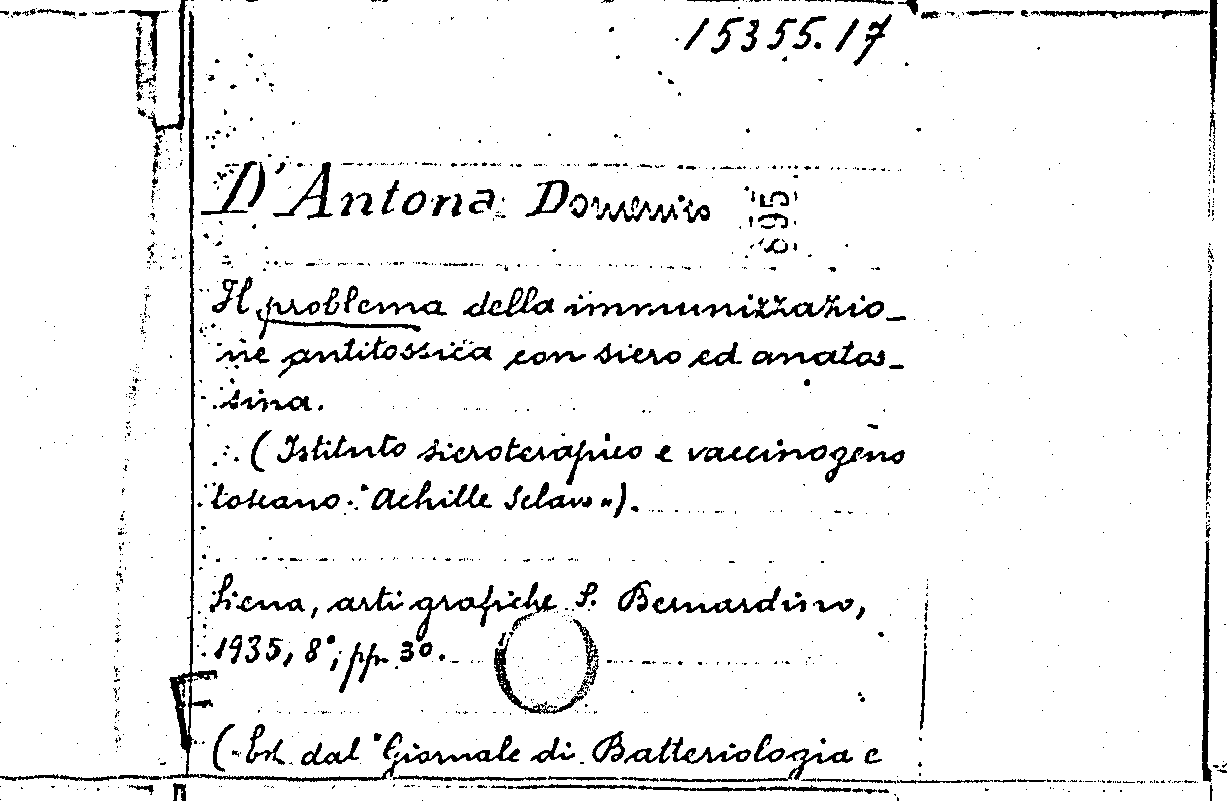 15355.17
D'Antona Domenico
895
Il problema della immunizzazio-
ne antitossica con siero ed anatos-
sina.
(Istituto sieroterapico e vaccinogeno
toscano "Achille Sclavo").
Siena, arti grafiche S. Bernardino,
1935, 8°, pp. 30.
(Est. dal "Giornale di Batteriologia e